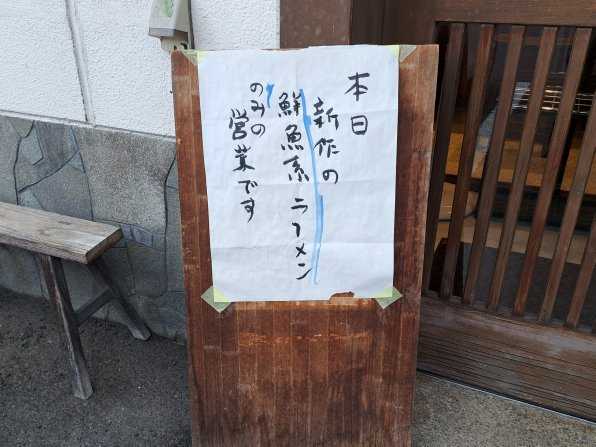 本日
新作の
鮮魚系ラーメン
のみの
営業です